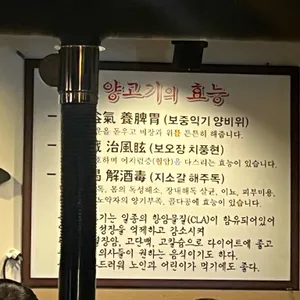 양고기의 효능
益氣 養脾胃 (보중익기 양비위)
운을 돋우고 비장과 위를 튼튼히 해줍니다.
歲 治風眩 (보오장 치풍현)
하며 어지럼증(현훈)을 다스리는 효능이 있습니다.
解酒毒 (지소갈 해주독)
독, 몸의 독성해소, 장내해독 살균, 이뇨, 피부미용,
노약자의 양기부족, 골다공에 효능이 있습니다.
기는 일종의 항암물질(CLA)이 함유되어있어
성장을 억제하고 감소시켜
질장암, 고단백, 고칼슘으로 다이어트에 좋고
의사들이 권하는 음식이기도 하다.
드러워 노인과 어린이가 먹기에도 좋다.